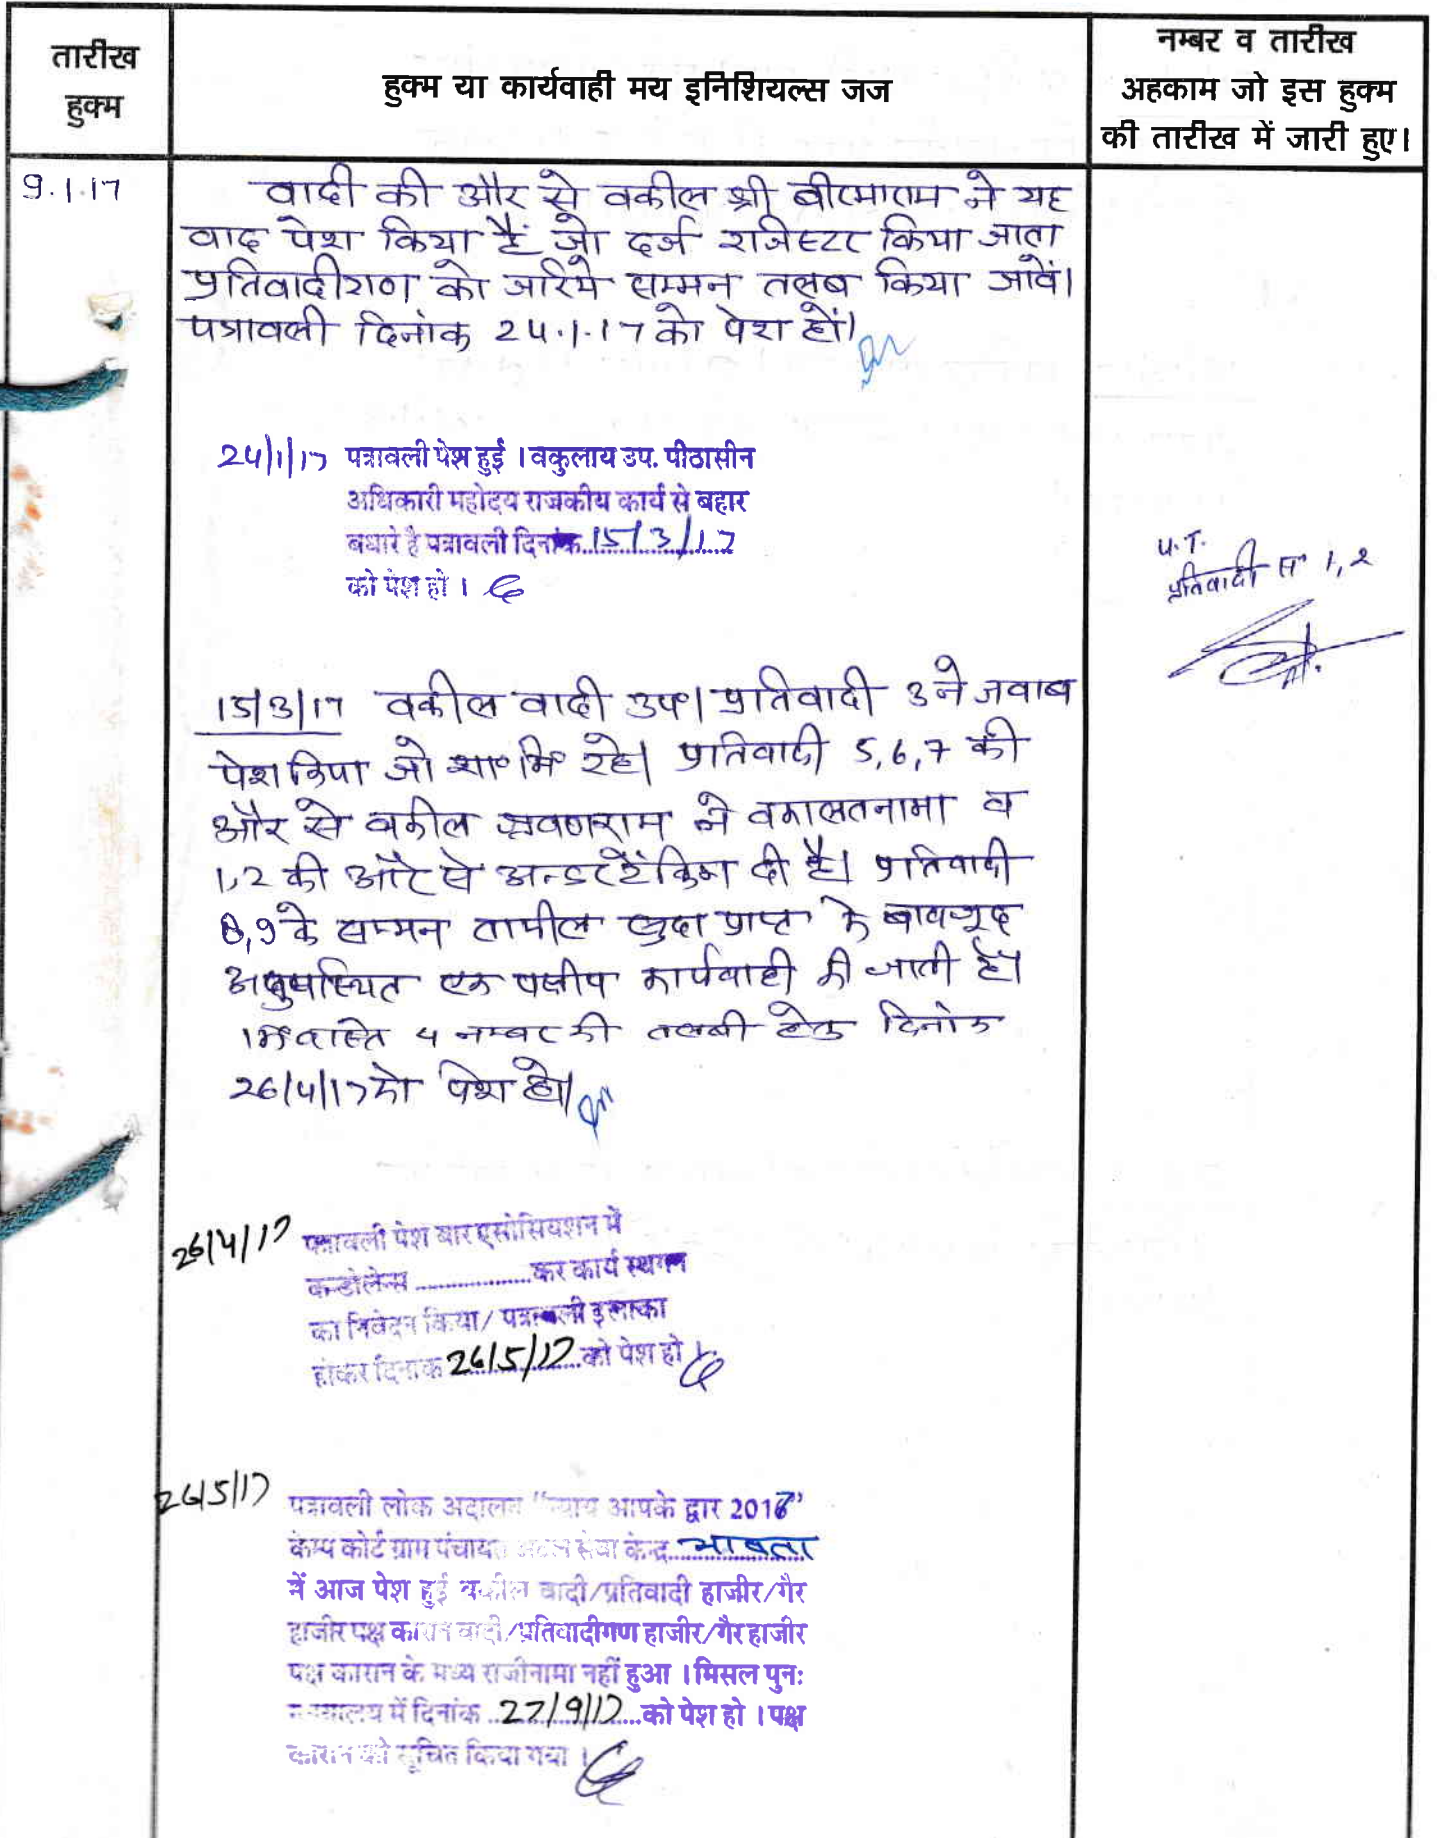 तारीख
हुक्म
हुक्म या कार्यवाही मय इनिशियल्स जज
नम्बर व तारीख
अहकाम जो इस हुक्म
की तारीख में जारी हुए।
9.1.17
वादी की और से वकील श्री बीरमाराम ने यह
वाद पेश किया है जो दर्ज राजिस्टर किया जाता
प्रतिवादीगण को जरिये सम्मन तलब किया जावें।
पत्रावली दिनांक 24.1.17 को पेश हों।
24/1/17 पत्रावली पेश हुई । वकुलाय उप. पीठासीन
अधिकारी महोदय राजकीय कार्य से बहार
बधारे है पत्रावली दिनांक 15/3/17
को पेश हो ।
U.T.
प्रतिवादी स 1, 2
15/3/17 वकील वादी उप। प्रतिवादी 3 ने जवाब
पेश किया जो शा॰मि॰ रहे। प्रतिवादी 5,6,7 की
और से वकील श्रवणराम ने वकालतनामा व
1,2 की और से अन्डरटेंकिग दी है। प्रतिवादी
8,9 के सम्मन तामील सुदा प्राप्त के बावजूद
अनुपस्थित एक पक्षीय कार्यवाही की जाती है।
वास्ते 4 नम्बर की तलबी हेतु दिनांक
26/4/17 को पेश हो।
26/4/17 पत्रावली पेश बार एसोसियशन में
कन्डोलेन्स ............ कर कार्य स्थगन
का निवेदन किया / पत्रावली इलाका
होकर दिनांक 26/5/17 को पेश हो ।
26/5/17 पत्रावली लोक अदालत "न्याय आपके द्वार 2017"
केम्प कोर्ट ग्राम पंचायत अटल सेवा केन्द्र
में आज पेश हुई वकील वादी/प्रतिवादी हाजीर/गैर
हाजीर पक्ष कारान वादी/प्रतिवादीगण हाजीर/गैर हाजीर
पक्ष कारान के मध्य राजीनामा नहीं हुआ । मिसल पुनः
न्यायालय में दिनांक 27/9/17 को पेश हो । पक्ष
कारान को सूचित किया गया ।